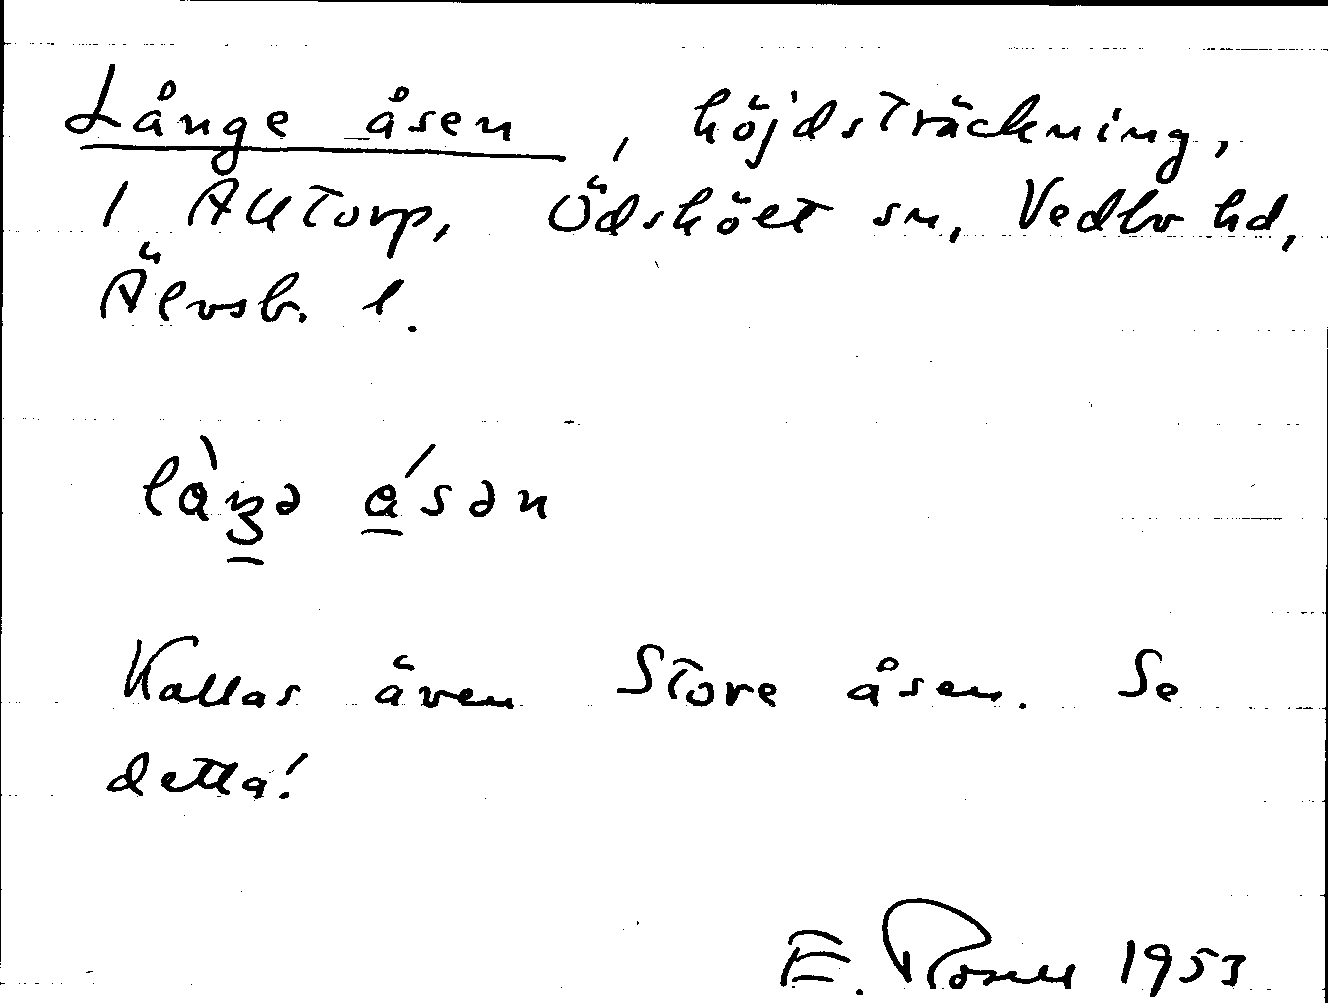 Långe åsen, höjdsträckning,
i Alltorp, Ödsköelt sn, Vedbo hd,
Älvsb. l.
Kallas även Store åsen. Se
detta!
E. Rosell 1953